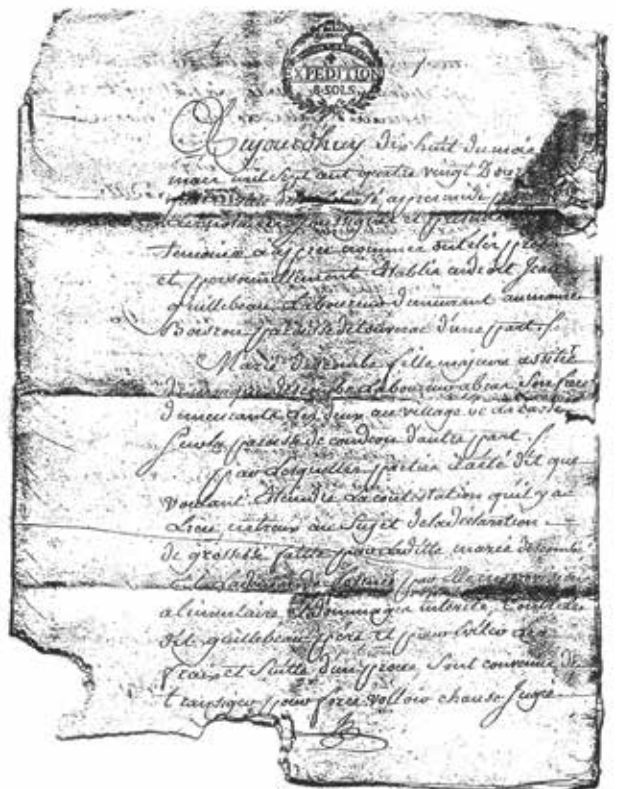 EXPEDITION
8 SOLS
Aujourdhuy dix huit du mois
mars mil sept cent quatre vingt Douze
apprez midi
et
temoins cy apprez nommes ont été
et personnellement Etablis en droit Jean
guillebeau Laboureur demeurant au
Boisrou paroisse de touverac d'une part. /.
Marie descombe fille majeure assistée
de descombe Laboureur son frere
demeurants les deux au village de
paroisse de condeon d'autre part. /.
par Lesquelles parties a été dit que
voulant Eteindre La contestation qu'il y a
Lieu entreux au Sujet de la declaration
de grossesse faitte par Laditte marie descombe
Et de La demande formée par Elle en provision
alimentaire et dommages interets, Contre le
dit guillebeau père et pour Eviter les
fraix et Suitte d'un proces sont convenus de
transiger pour force valloir chause Jugée